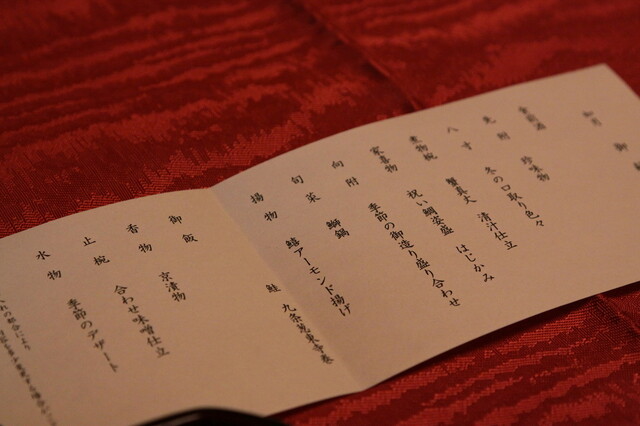 御
食前酒
先付　珍味物
八寸　冬の口取り色々
煮物椀　蟹真丈　清汁仕立　はじかみ
家喜物　祝い鯛姿盛
向附　季節の御造り盛り合わせ
旬菜　鰤鍋
揚物　鱚アーモンド揚げ
御飯　鮭
香物　京漬物
止椀　合わせ味噌仕立
水物　季節のアザート